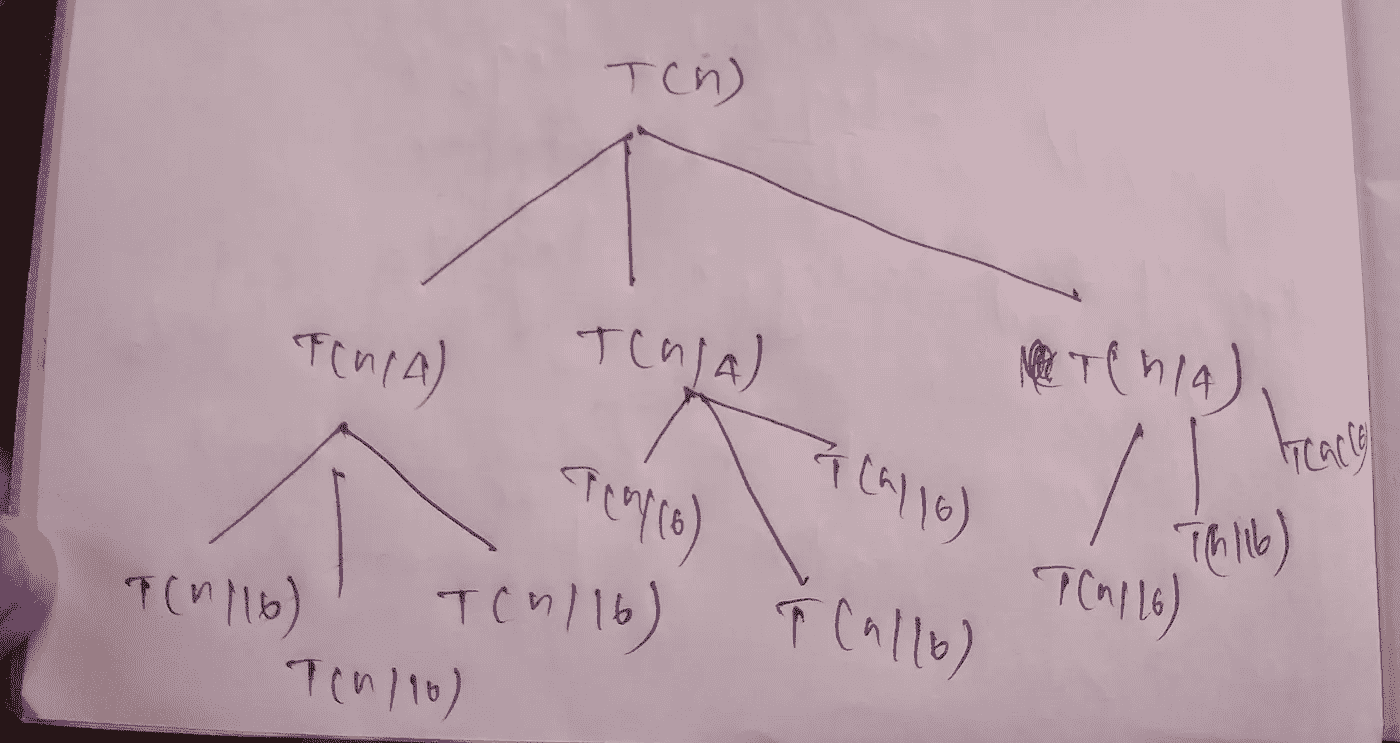 T(n)
T(n/4) T(n/4) T(n/4)
T(n/16) T(n/16) T(n/16)
T(n/16) T(n/16) T(n/16) T(n/16)
T(n/16)